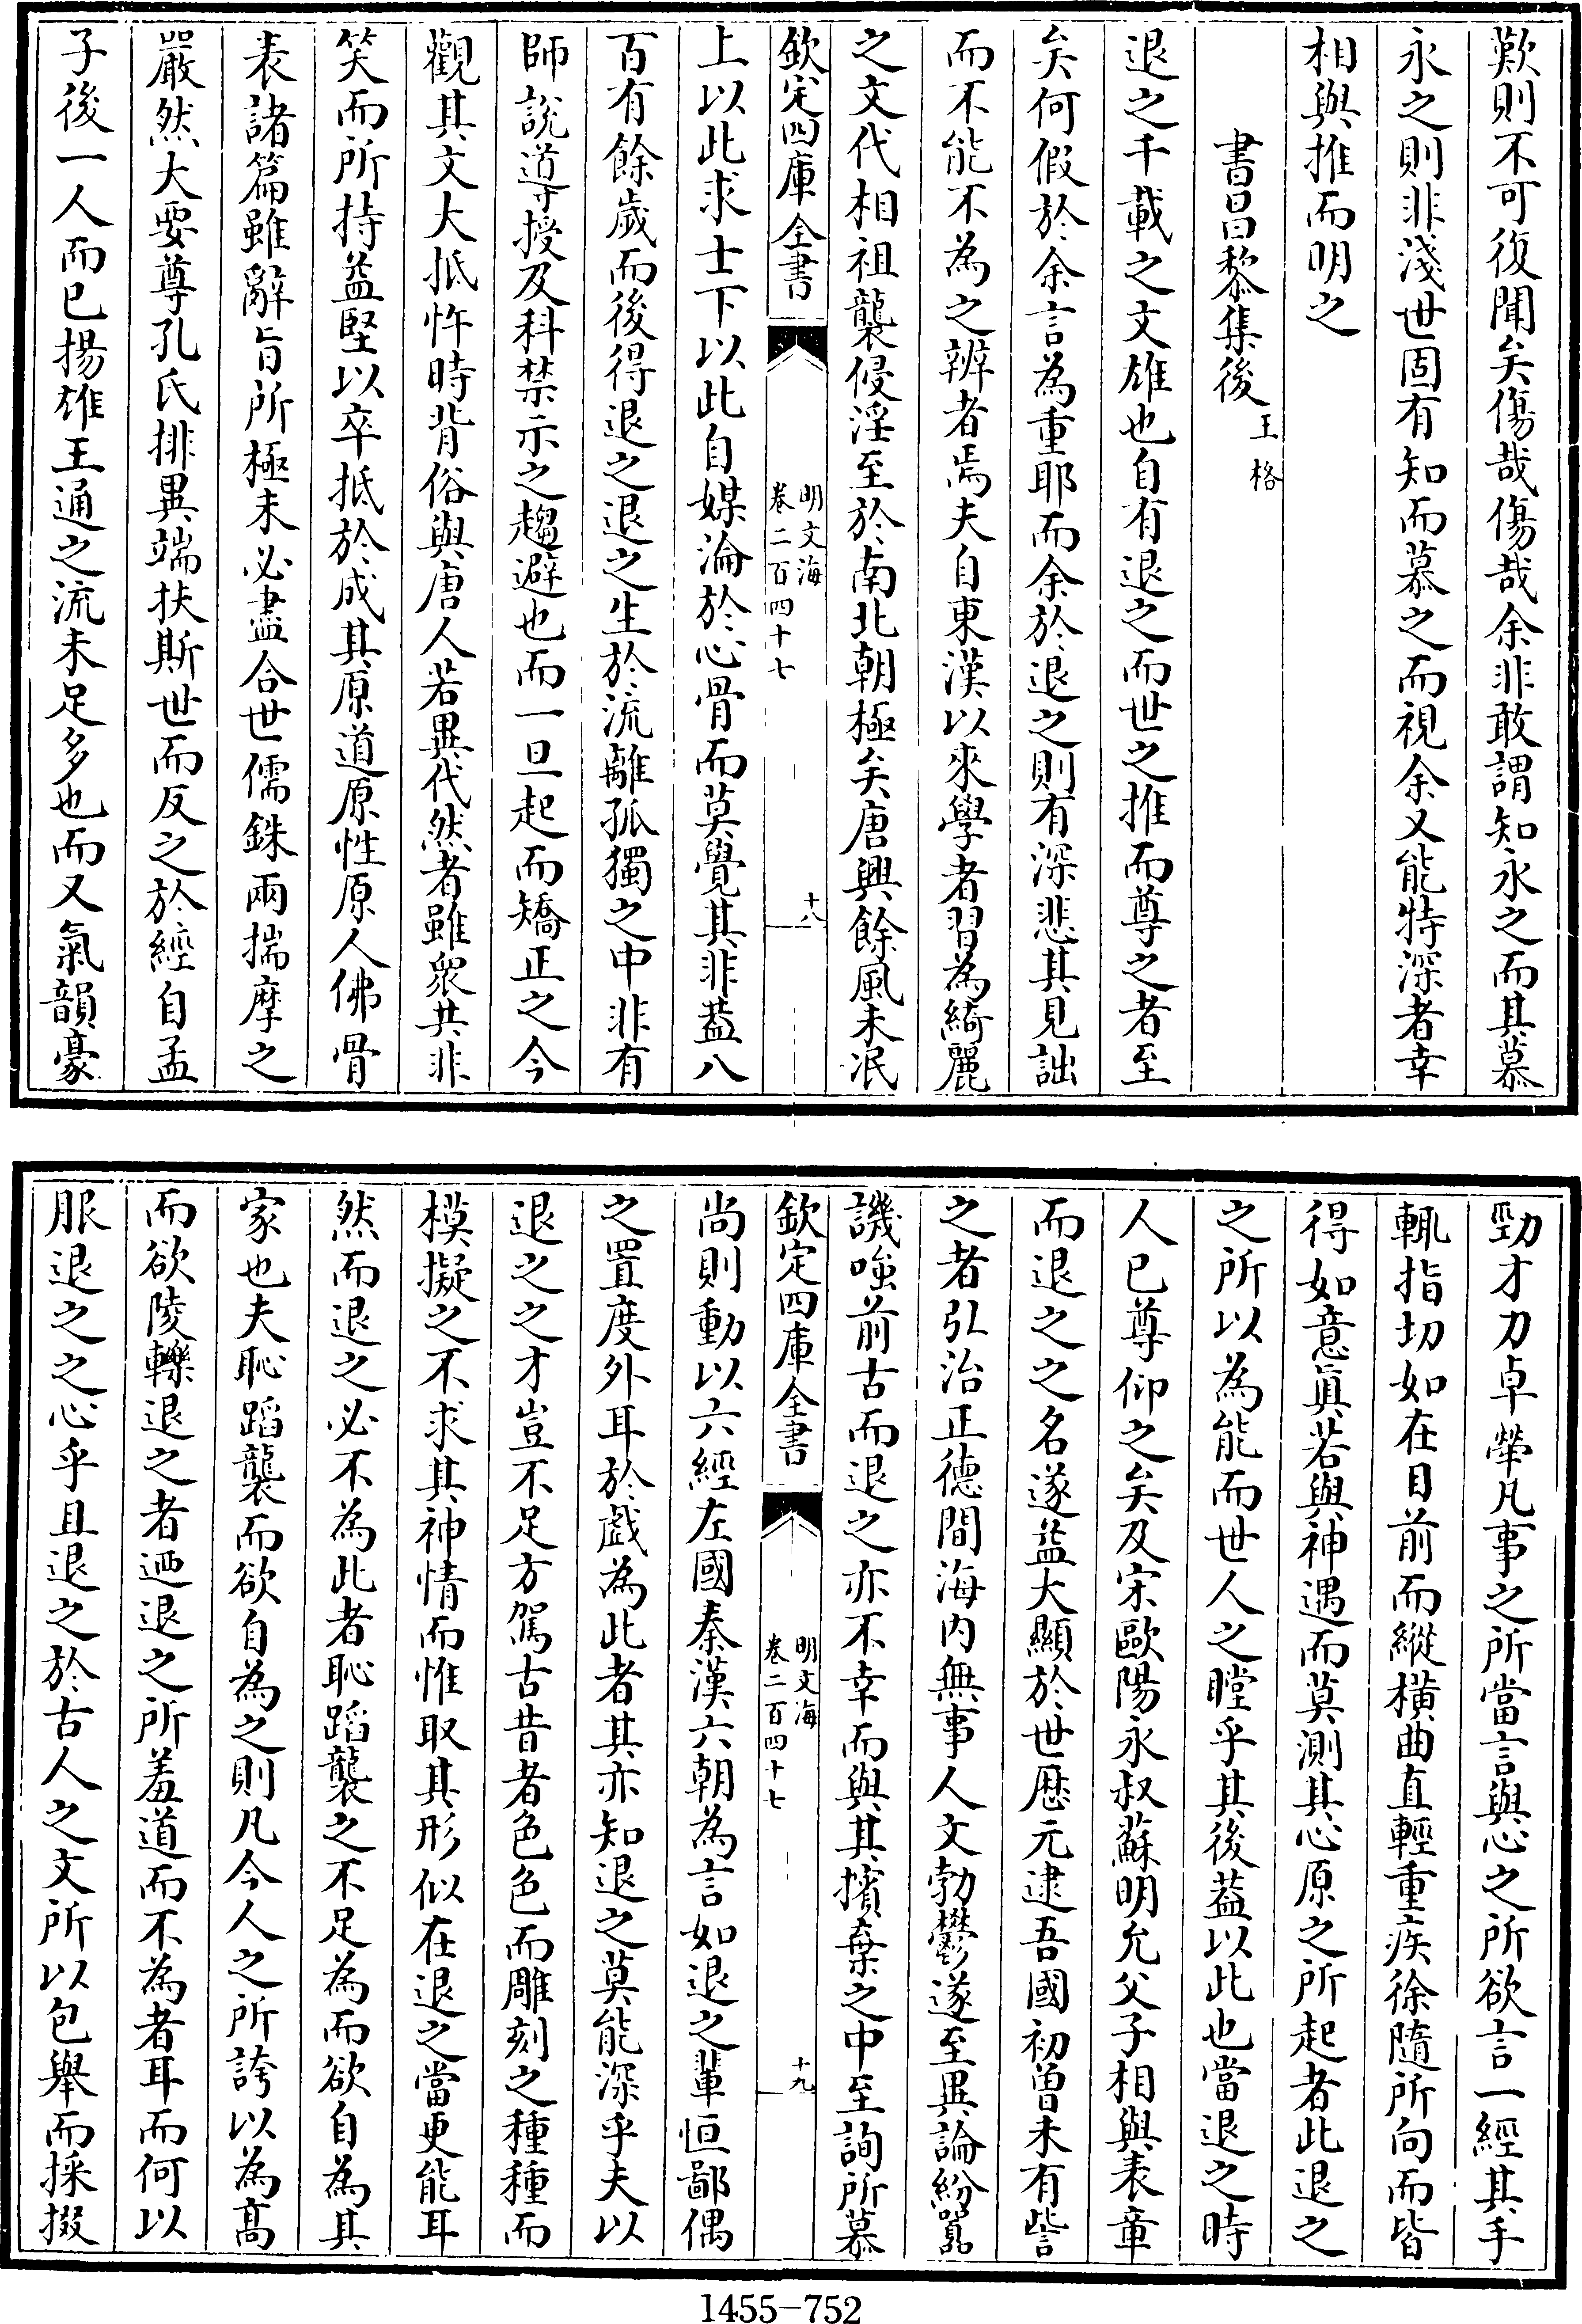 歎則不可復聞矣傷哉傷哉余非敢謂知永之而其慕
永之則非淺世固有知而慕之而視余又能特深者幸
相與推而明之
書昌黎集後 王格
退之千載之文雄也自有退之而世之推而尊之者至
矣何假於余言為重耶而余於退之則有深悲其見詘
而不能不為之辨者焉夫自東漢以來學者習為綺麗
之文代相祖襲侵淫至於南北朝極矣唐興餘風未泯
欽定四庫全書
明文海
卷二百四十七
十八
上以此求士下以此自媒淪於心骨而莫覺其非葢八
百有餘歲而後得退之退之生於流離孤獨之中非有
師說導授及科禁示之趨避也而一旦起而矯正之今
觀其文大抵忤時背俗與唐人若異代然者雖衆共非
笑而所持益堅以卒抵於成其原道原性原人佛骨
表諸篇雖辭旨所極未必盡合世儒銖兩揣摩之
嚴然大要尊孔氏排異端扶斯世而反之於經自孟
子後一人而已揚雄王通之流未足多也而又氣韻豪
勁才力卓犖凡事之所當言與心之所欲言一經其手
輒指切如在目前而縱橫曲直輕重疾徐隨所向而皆
得如意真若與神遇而莫測其心原之所起者此退之
之所以為能而世人之瞠乎其後葢以此也當退之時
人已尊仰之矣及宋歐陽永叔蘇明允父子相與表章
而退之之名遂益大顯於世歴元逮吾國初曾未有訾
之者弘治正德間海内無事人文勃鬱遂至異論紛囂
譏嗤前古而退之亦不幸而與其擯棄之中至詢所慕
欽定四庫全書
明文海
卷二百四十七
十九
尚則動以六經左國秦漢六朝為言如退之輩恒鄙偶
之置度外耳於戲為此者其亦知退之莫能深乎夫以
退之之才豈不足方駕古昔者色色而雕刻之種種而
模擬之不求其神情而惟取其形似在退之當更能耳
然而退之必不為此者恥蹈襲之不足為而欲自為其
家也夫恥蹈襲而欲自為之則凡今人之所誇以為髙
而欲陵轢退之者迺退之所羞道而不為者耳而何以
服退之之心乎且退之於古人之文所以包舉而採掇
1455-752